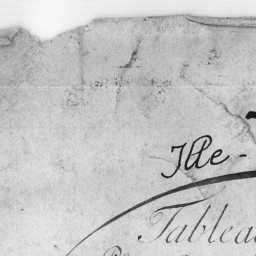 Ille-
Tablea